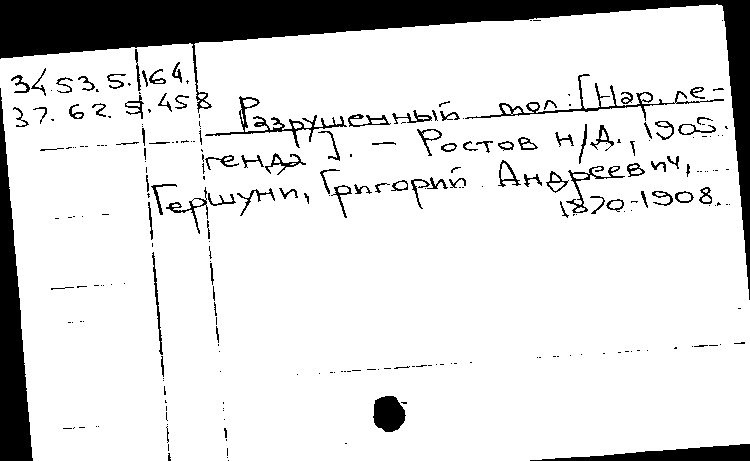 34.53.5.164.
37.62.5.458
Разрушенный мол: [Нар. ле-
генда]. – Ростов н/Д., 1905.
Гершуни, Григорий Андреевич,
1870-1908.